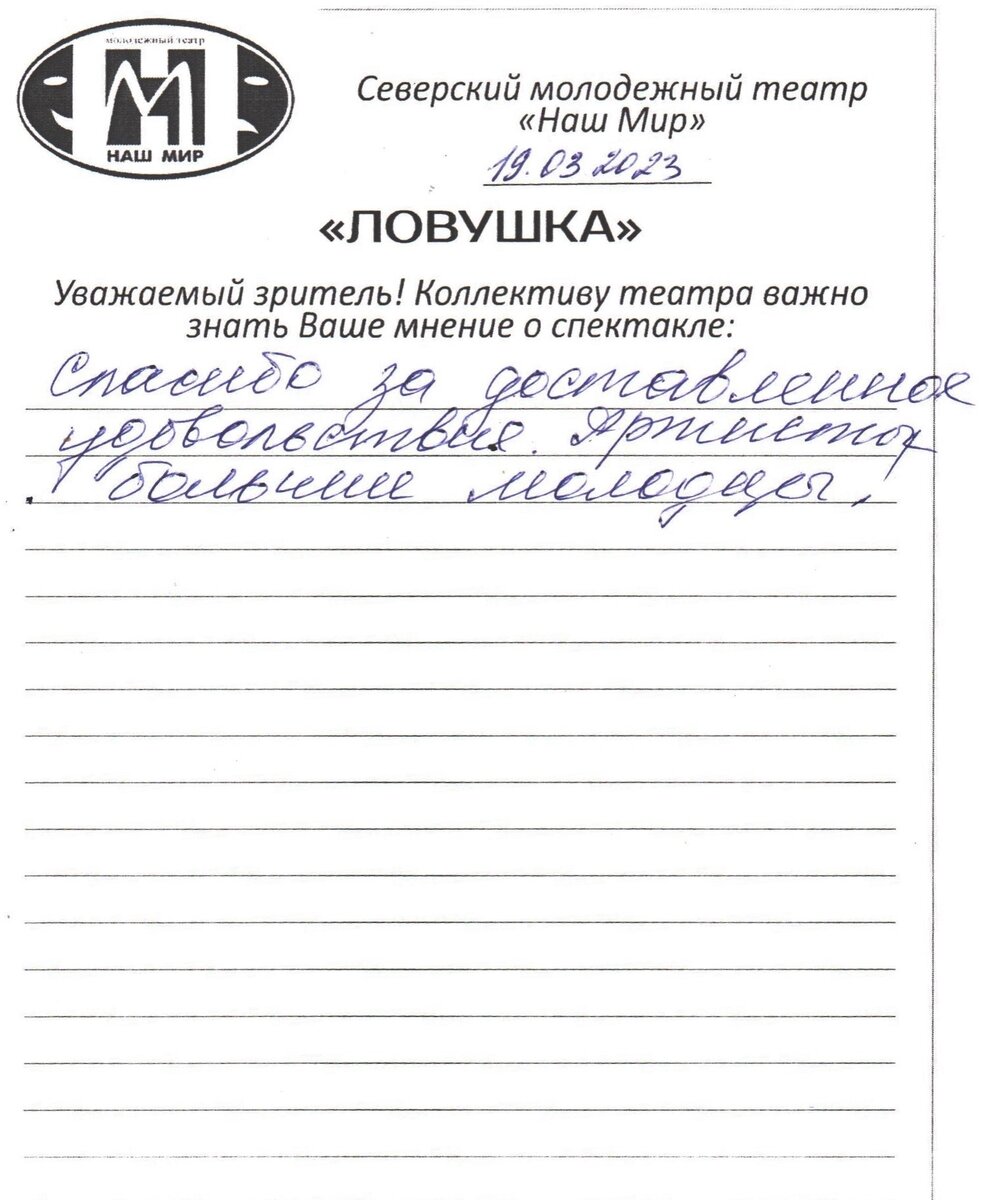 молодежный театр
НАШ МИР
Северский молодежный театр
«Наш Мир»
19.03 2023
«ЛОВУШКА»
Уважаемый зритель! Коллективу театра важно
знать Ваше мнение о спектакле:
Спасибо за доставленное
удовольствие. Артисты
большие молодцы!